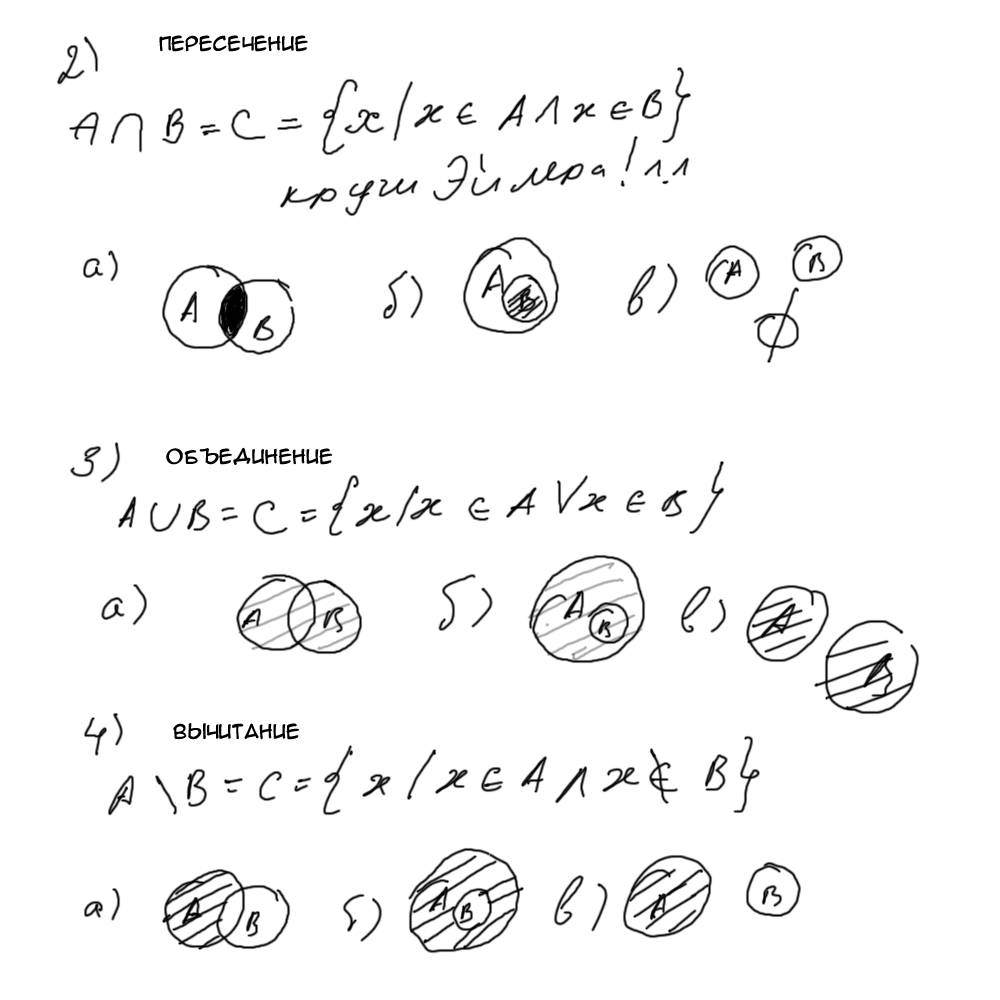 2) ПЕРЕСЕЧЕНИЕ
A ∩ B = C = {x / x ∈ A ∧ x ∈ B}
круги Эйлера!
а) A B б) A B в) A B ∅
3) ОБЪЕДИНЕНИЕ
A ∪ B = C = {x / x ∈ A ∨ x ∈ B}
а) A B б) A B в) A B
4) ВЫЧИТАНИЕ
A \ B = C = {x / x ∈ A ∧ x ∉ B}
а) A B б) A B в) A B